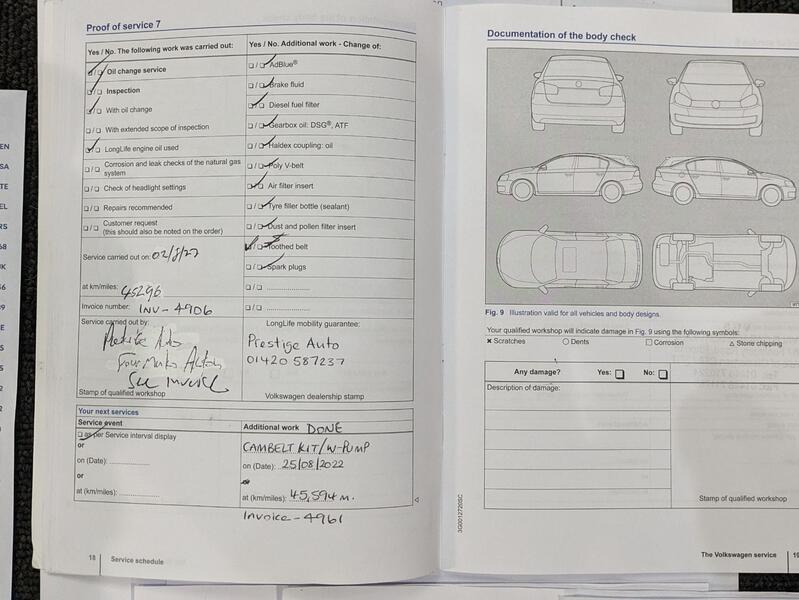 Proof of service 7
Yes / No. The following work was carried out:
Oil change service
Inspection
With oil change
With extended scope of inspection
LongLife engine oil used
Corrosion and leak checks of the natural gas
system
Check of headlight settings
Repairs recommended
Customer request
(this should also be noted on the order)
Service carried out on:
at km/miles: 45296
Invoice number: INV-4906
Service carried out by:
Auto
See Invoice
Stamp of qualified workshop
Yes / No. Additional work - Change of:
AdBlue®
Brake fluid
Diesel fuel filter
Gearbox oil: DSG®, ATF
Haldex coupling: oil
Poly V-belt
Air filter insert
Tyre filler bottle (sealant)
Dust and pollen filter insert
Toothed belt
Spark plugs
LongLife mobility guarantee:
Prestige Auto
01420 587237
Volkswagen dealership stamp
Your next services
Service event
as per Service interval display
or
on (Date):
or
at (km/miles):
Additional work DONE
CAMBELT KIT/W-PUMP
on (Date): 25/08/2022
at (km/miles): 45,594 m.
Invoice - 4961
18 Service schedule
Documentation of the body check
Fig. 9 Illustration valid for all vehicles and body designs.
Your qualified workshop will indicate damage in Fig. 9 using the following symbols:
Scratches Dents Corrosion Stone chipping
Any damage? Yes: No:
Description of damage:
Stamp of qualified workshop
3G0012720SC
The Volkswagen service 19